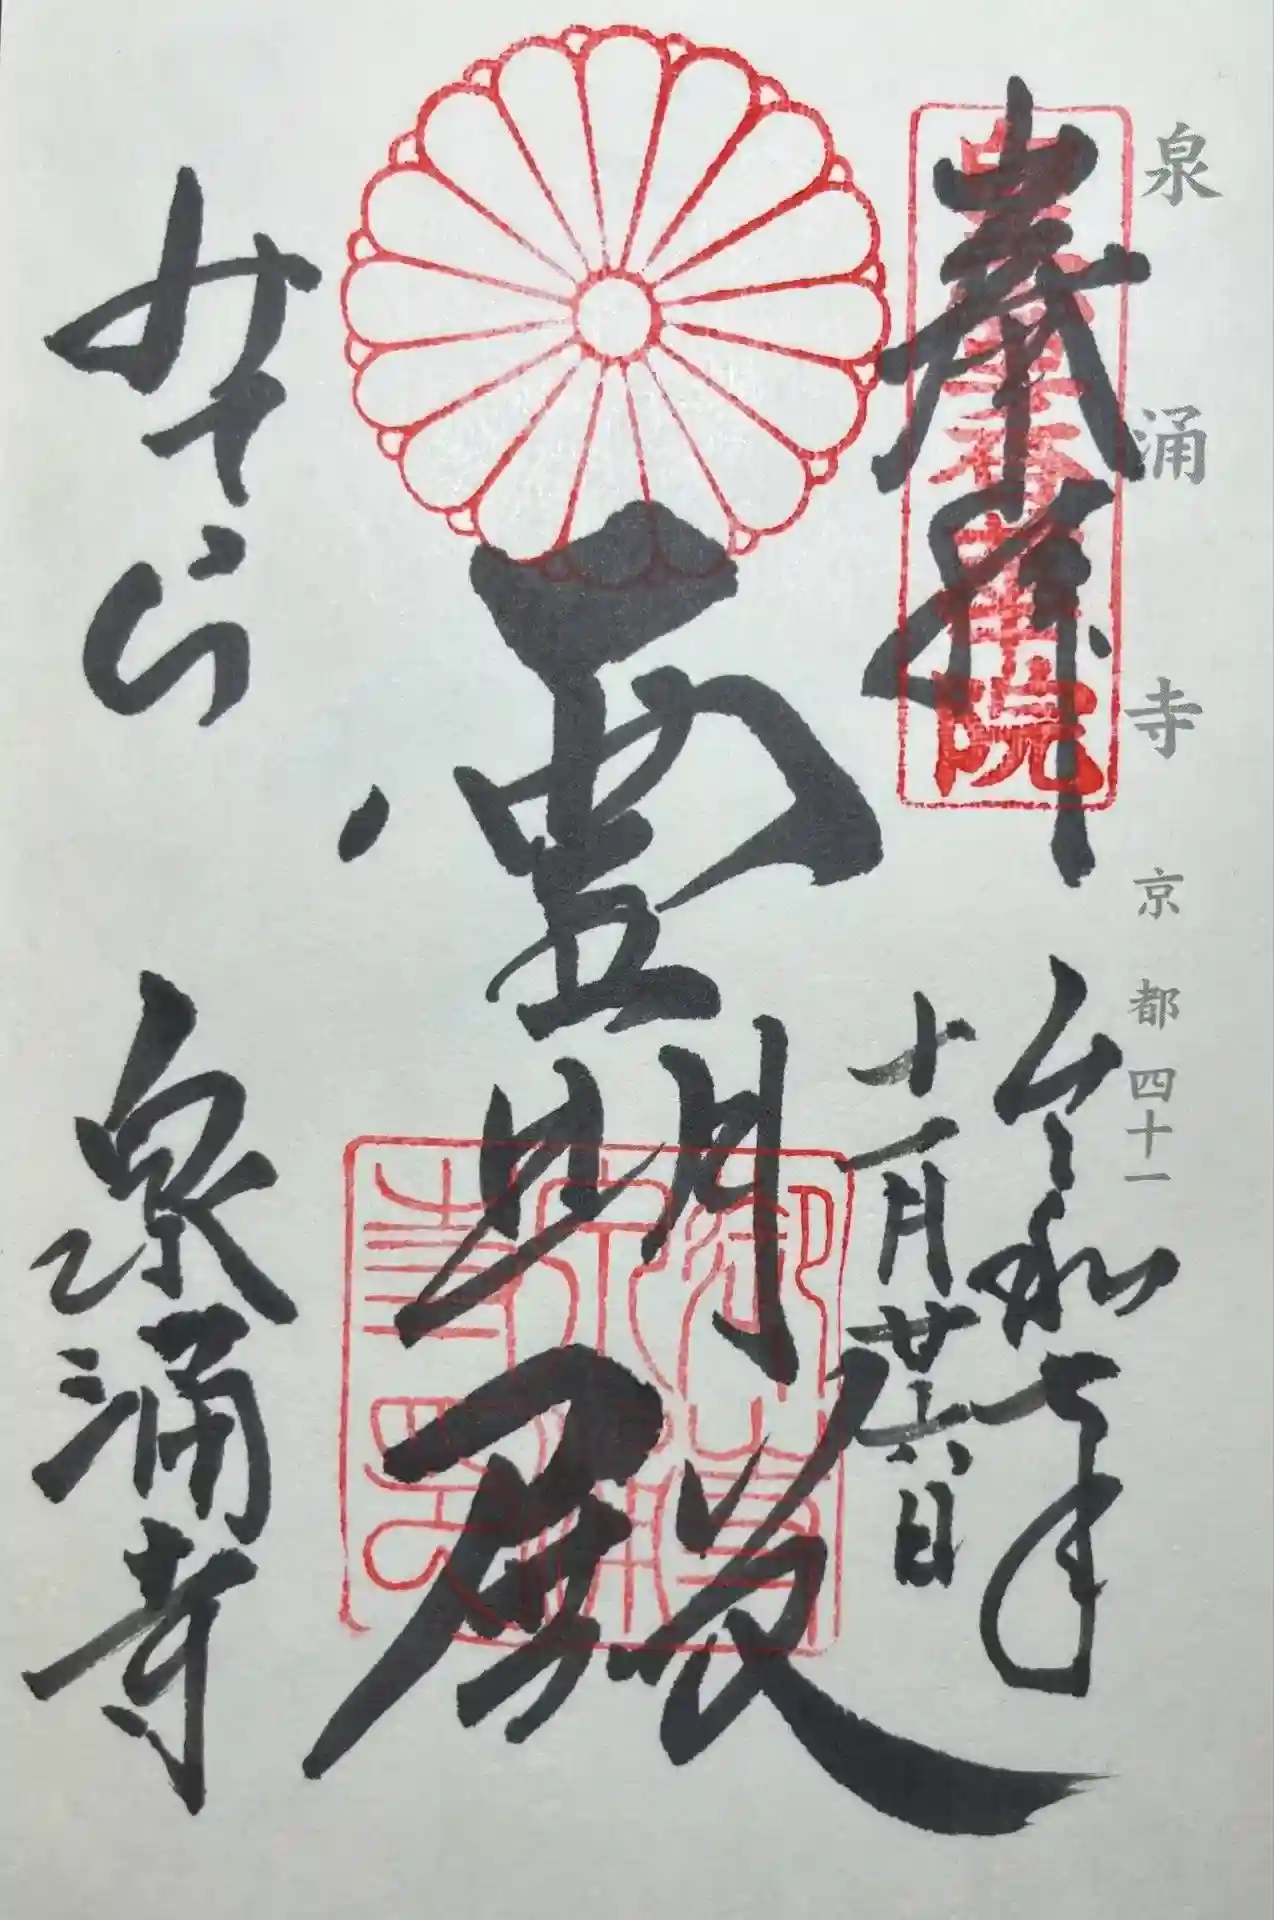 泉涌寺 京都 四十一
奉拝
皇室香華院
令和七年
十一月廿六日
霊明殿
みてら
泉涌寺